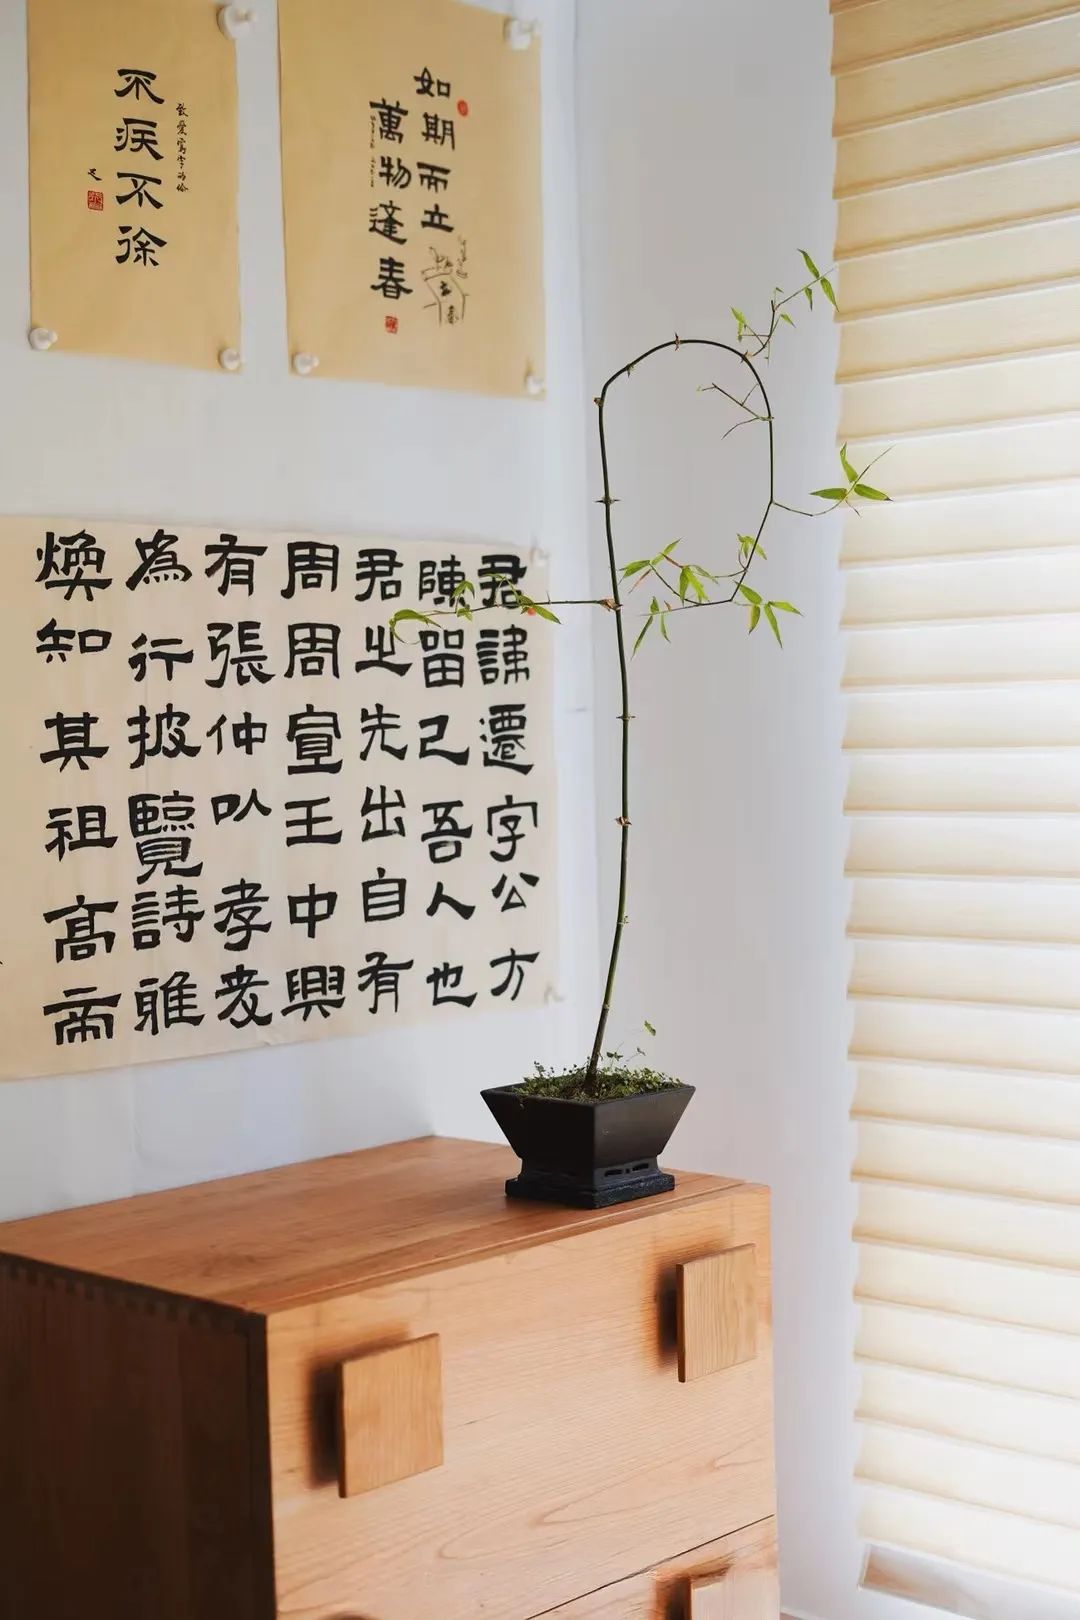 致愛寫字的你
不疾不徐
如期而立
萬物逢春
君諱遷字公方
陳留己吾人也
君之先出自有
周周宣王中興
有張仲以孝友
為行披覽詩雅
煥知其祖高帝